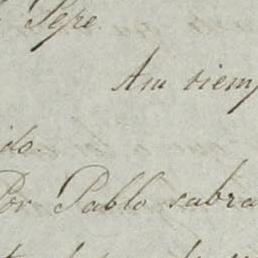 Pepe
Am siemp
ido.
Por Pablo sabra